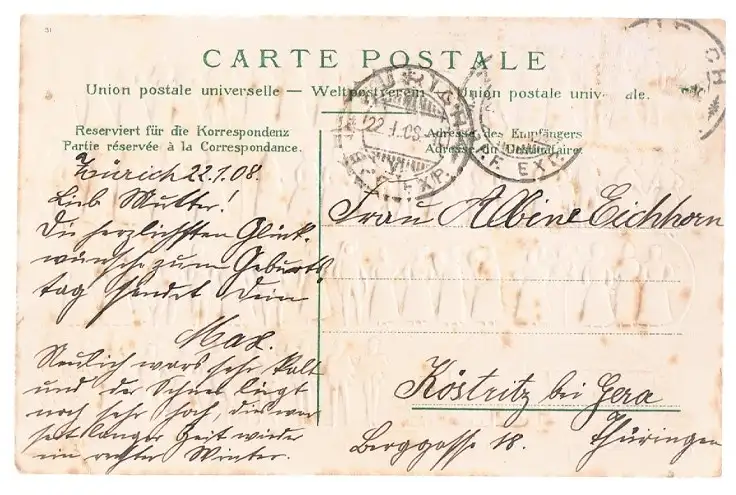 31
CARTE POSTALE
Union postale universelle — Weltpostverein — Union postale univ ale.
Reserviert für die Korrespondenz
Partie réservée à la Correspondance.
Adresse des Empfängers
Adresse du Destinataire
ZÜRICH
22.I.08
F. EXP.
F. EXP.
Zürich 22.1.08.
Lieb Mutter!
Die herzlichsten Glück-
wünsche zum Geburts-
tag sendet Dein
Max.
Neulich wars sehr kalt
und der Schnee liegt
noch sehr hoch, dies war
seit langer Zeit wieder
ein rechter Winter.
Frau Albine Eichhorn
Köstritz bei Gera
Berggasse 18. Thüringen